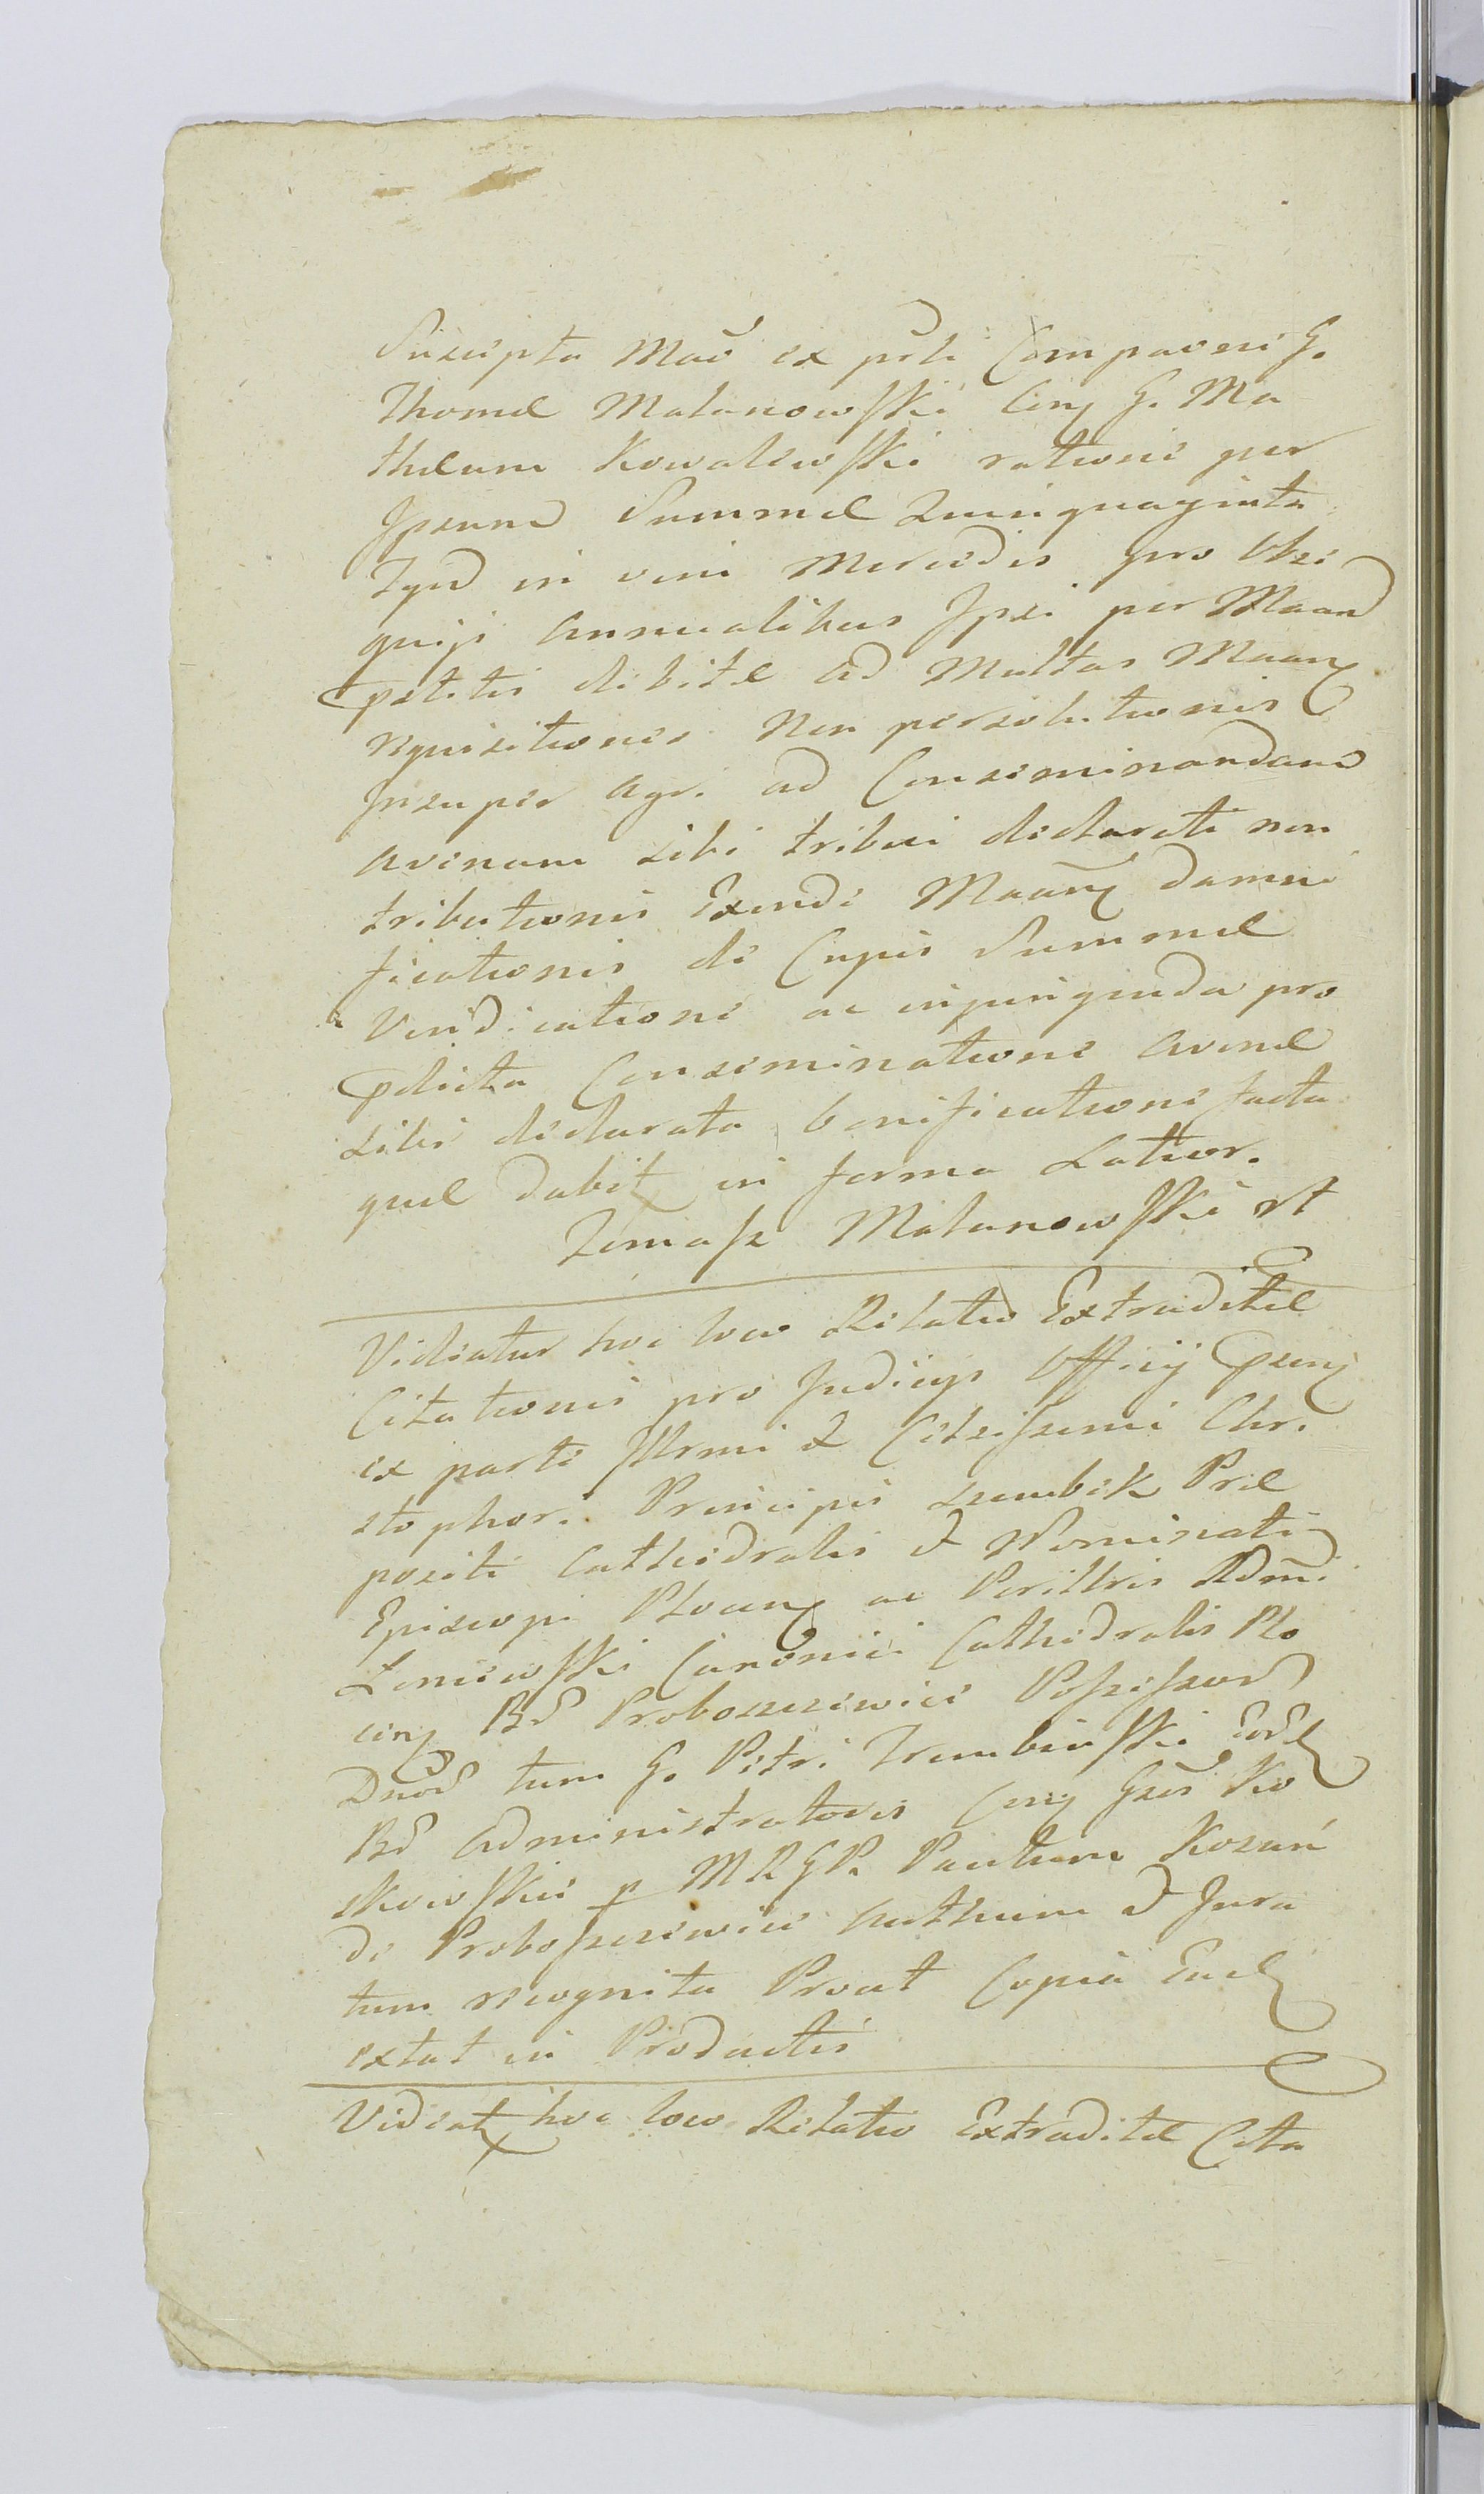 Suscepta Maõ ex pṙti Comparen: G.
Thomæ Malanowski Cṁ G. Ma
thæum Kowalewski ratione per
Ipsum Summæ Quinquaginta
Tynf in vim Mercedis pro Obse
quijs Annualibus Ipsi per Maan
pstitis debitæ ad Multas Maan
requisitiones Non persolutionis
Insuper agri ad Conseminandam
avenam sibi tribui declarati non
tributionis Exinde Maan damni
ficationis de Cujus Summæ
Vindicatione ac injungenda pro
pdicta Conseminatione avenæ
sibi declarata bonificatione facta
quæ dabit in forma Latior.
Tomasz Malanowski
Videatur hoc loco Relatio Extraditæ
Citationis pro Judicijs Officij
ex parte Illrmi & Celsissimi Chri
stophori Principis Szembek Præ
positi Cathedralis & Nominati
Episcopi Plocen ac Perillris Rdmi
Canonici Cathedralis Plo
cen Bd Proboszczewice Possessor
Dnor tum G. Petri Trembinski Eord
Bd Administratoris Con Gsos Ko
skowskie p MRGPn Pautum Kozan
de Proboszczewice Authum & Jura
tum recognita Prout Copia Ead
extat in Productis
Videat hoc loco Relatio Extraditæ Cita